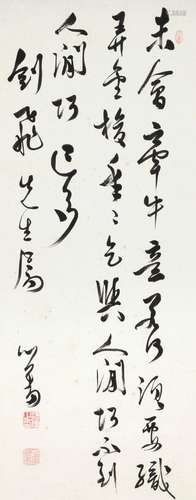 未會牽牛意若何須要織
弄金梭年〻乞與人間巧不到
人間巧已多
劍飛先生屬
心畬